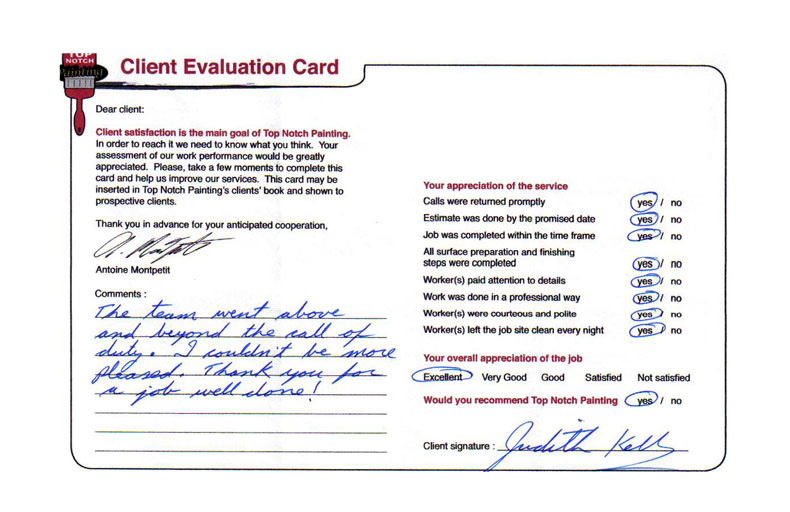 TOP
NOTCH
Painting
Client Evaluation Card
Dear client:
Client satisfaction is the main goal of Top Notch Painting.
In order to reach it we need to know what you think. Your
assessment of our work performance would be greatly
appreciated. Please, take a few moments to complete this
card and help us improve our services. This card may be
inserted in Top Notch Painting's clients' book and shown to
prospective clients.
Thank you in advance for your anticipated cooperation,
A. Montpetit
Antoine Montpetit
Comments :
The team went above
and beyond the call of
duty. I couldn't be more
pleased. Thank you for
a job well done!
Your appreciation of the service
Calls were returned promptly yes / no
Estimate was done by the promised date yes / no
Job was completed within the time frame yes / no
All surface preparation and finishing
steps were completed yes / no
Worker(s) paid attention to details yes / no
Work was done in a professional way yes / no
Worker(s) were courteous and polite yes / no
Worker(s) left the job site clean every night yes / no
Your overall appreciation of the job
Excellent Very Good Good Satisfied Not satisfied
Would you recommend Top Notch Painting yes / no
Client signature : Judith Kelly